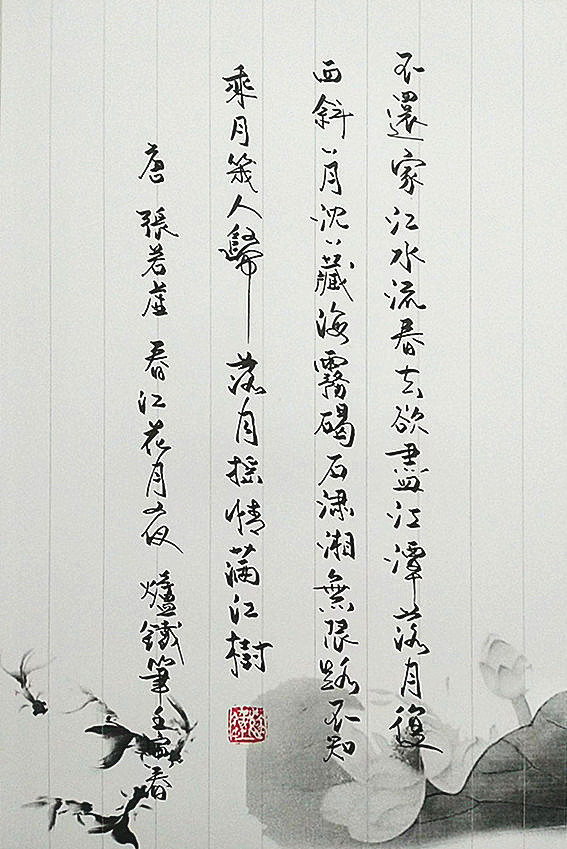 不還家江水流春去欲盡江潭落月復
西斜〻月沈〻藏海霧碣石瀟湘無限路不知
乘月幾人歸落月搖情滿江樹
唐 張若虛 春江花月夜 爐鐵筆王春